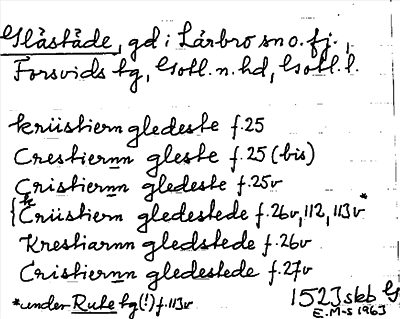 Glåståde, gd i Lärbro sn o. fj.,
Forsvids tg, Gotl. n. hd, Gotl. l.
kriistiern gledeste f. 25
Crestiernn gleste f. 25 (bis)
Cristiernn gledeste f. 25v
k
{ Criistiern gledestede f. 26v, 112, 113v*
Krestiarnn gledstede f. 26v
Cristiernn gledestede f. 27v
1523 skb G
*under Rute tg (!) f. 113v
E. M-s 1963